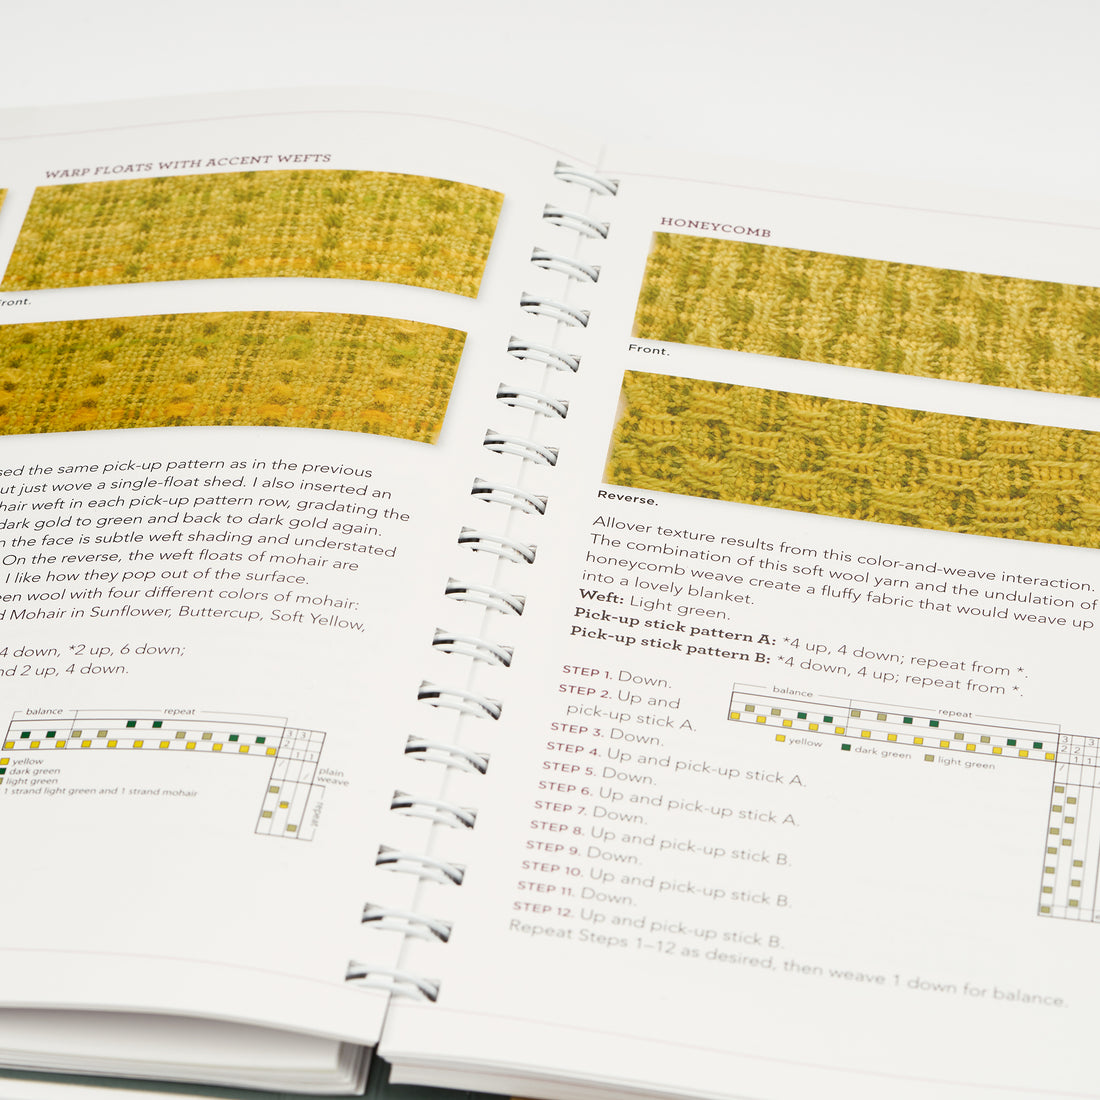 WARP FLOATS WITH ACCENT WEFTS
Front.
sed the same pick-up pattern as in the previous
ut just wove a single-float shed. I also inserted an
hair weft in each pick-up pattern row, gradating the
dark gold to green and back to dark gold again.
n the face is subtle weft shading and understated
On the reverse, the weft floats of mohair are
I like how they pop out of the surface.
een wool with four different colors of mohair:
d Mohair in Sunflower, Buttercup, Soft Yellow,
4 down, *2 up, 6 down;
nd 2 up, 4 down.
balance repeat
3 3
2 2
1 1
yellow
dark green
light green
1 strand light green and 1 strand mohair
plain
weave
repeat
HONEYCOMB
Front.
Reverse.
Allover texture results from this color-and-weave interaction.
The combination of this soft wool yarn and the undulation of
honeycomb weave create a fluffy fabric that would weave up
into a lovely blanket.
Weft: Light green.
Pick-up stick pattern A: *4 up, 4 down; repeat from *.
Pick-up stick pattern B: *4 down, 4 up; repeat from *.
STEP 1. Down.
STEP 2. Up and
pick-up stick A.
STEP 3. Down.
STEP 4. Up and pick-up stick A.
STEP 5. Down.
STEP 6. Up and pick-up stick A.
STEP 7. Down.
STEP 8. Up and pick-up stick B.
STEP 9. Down.
STEP 10. Up and pick-up stick B.
STEP 11. Down.
STEP 12. Up and pick-up stick B.
Repeat Steps 1–12 as desired, then weave 1 down for balance.
balance repeat
yellow dark green light green